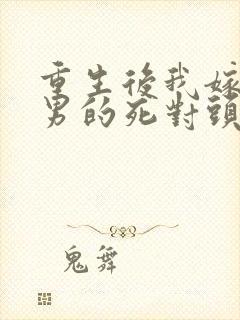 重生後我嫁
男的死對頭
鬼舞